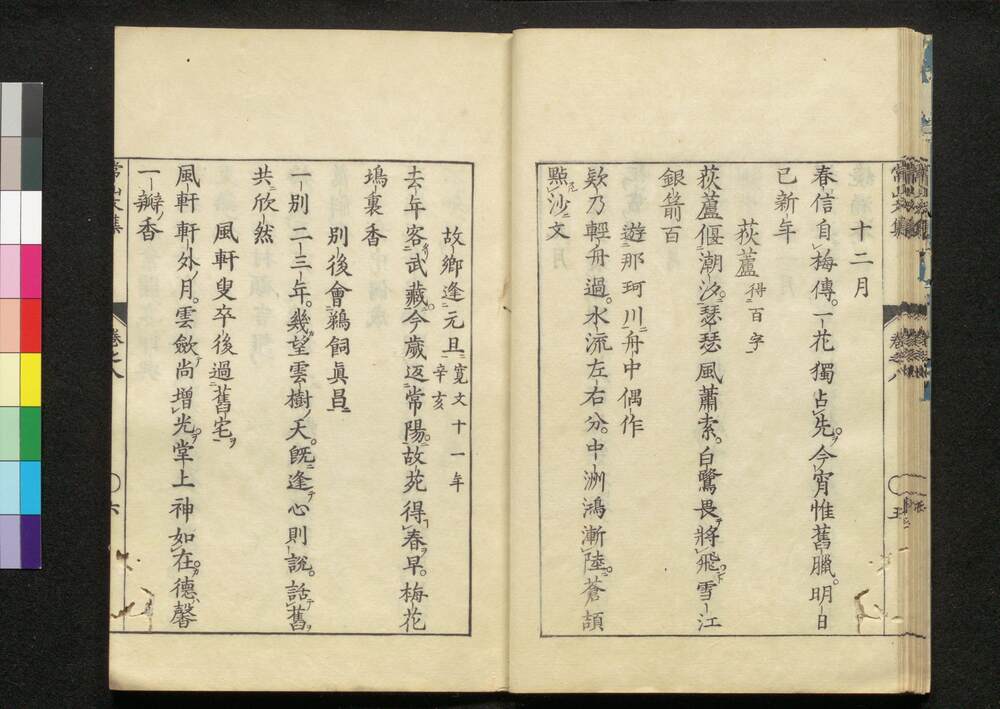 十二月
春信自梅傳。一花獨占先。今宵惟舊臘。明日
已新年
荻蘆 得百字
荻蘆偃潮汐。瑟瑟風蕭索。白鷺畏將飛。雪江
銀箭百
遊那珂川舟中偶作
欸乃輕舟過。水流左右分。中洲鴻漸陸。蒼頡
點沙文
常山文集 卷之八 五
故鄉逢元旦 寛文十一年辛亥
去年客武藏。今歲返常陽。故苑得春早。梅花
塢裏香
別後會鵜飼眞昌
一別二三年。幾望雲樹天。既逢心則說。話舊
共欣然
風軒叟卒後過舊宅
風軒軒外月。雲斂尚增光。堂上神如在。德馨
一瓣香
常山文集 卷之八 六